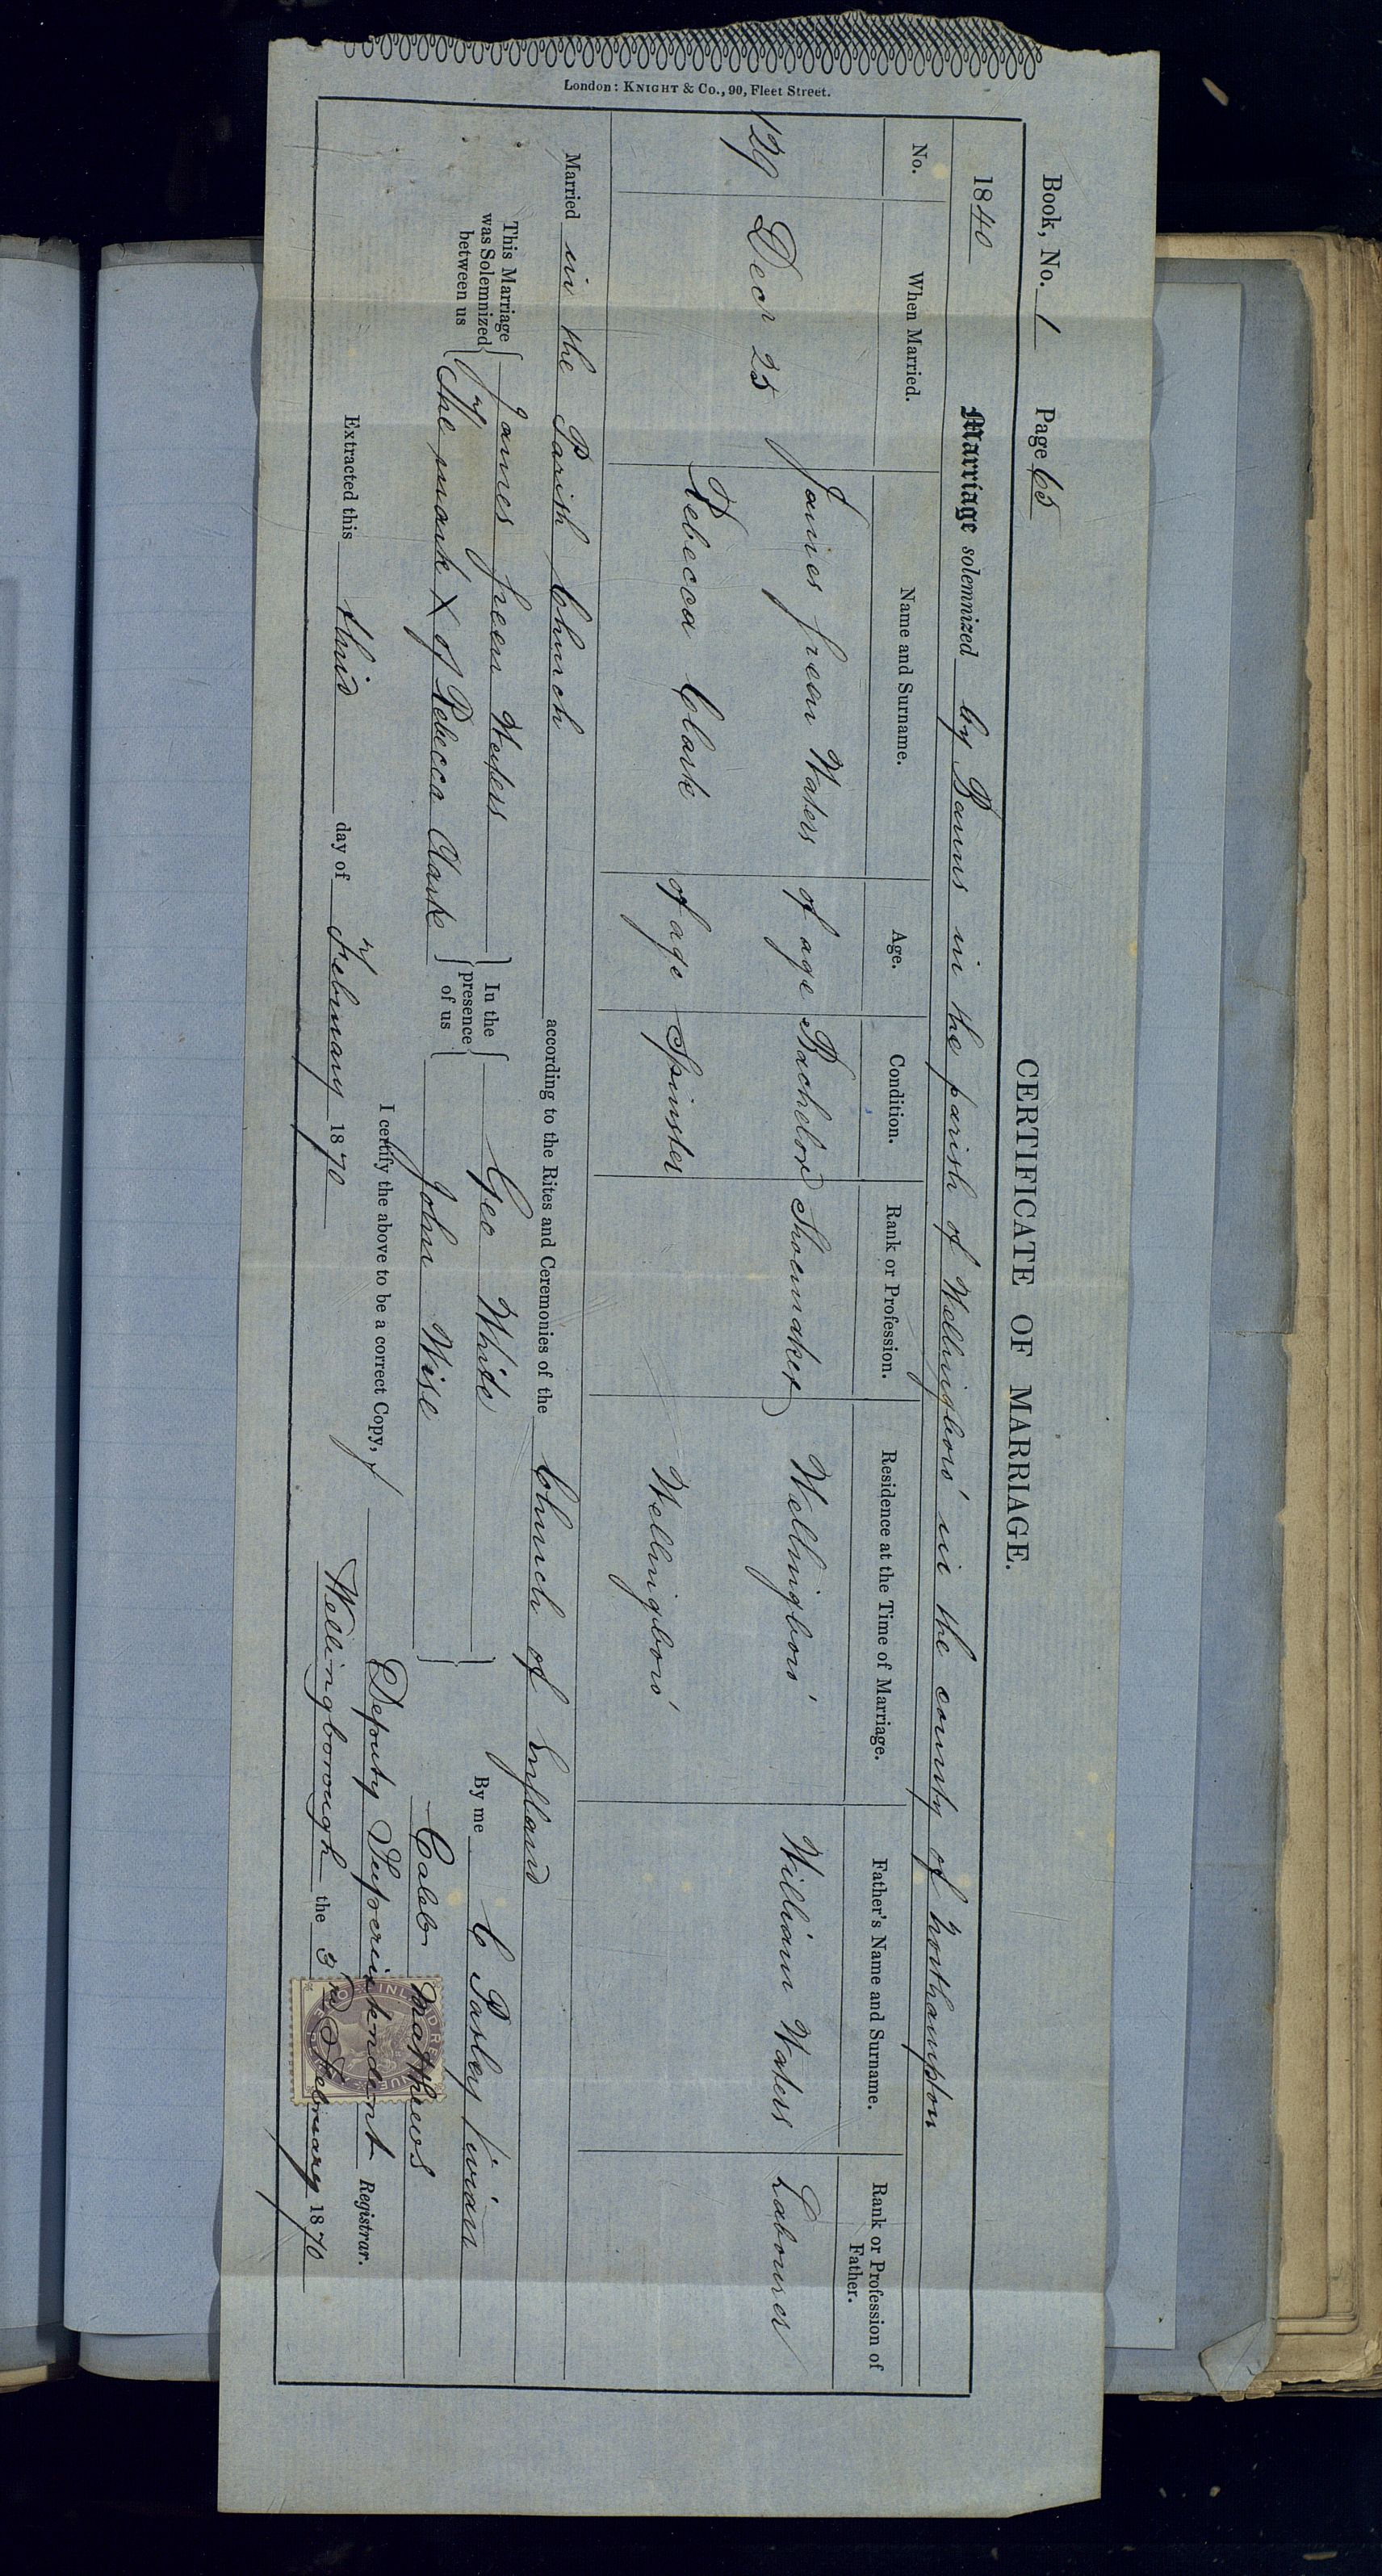 London: KNIGHT & Co., 90, Fleet Street.
Book, No. 1 Page 65
CERTIFICATE OF MARRIAGE.
1840 Marriage solemnized by Banns in the parish of Wellingboro' in the county of Northampton
No. When Married. Name and Surname. Age. Condition. Rank or Profession. Residence at the Time of Marriage. Father's Name and Surname. Rank or Profession of Father.
129 Decr 25 James Green Waters of age Bachelor Shoemaker Wellingboro' William Waters Labourer
Rebecca Clark of age Spinster Wellingboro'
Married in the Parish Church according to the Rites and Ceremonies of the Church of England
This Marriage was Solemnized between us James Green Waters In the presence of us Geo White By me C Pasley Vivian
The mark X of Rebecca Clark John Wise
I certify the above to be a correct Copy, Caleb Matthews
Deputy Superintendent Registrar.
Extracted this third day of February 1870 Wellingborough the 3rd February 1870
INLAND REVENUE